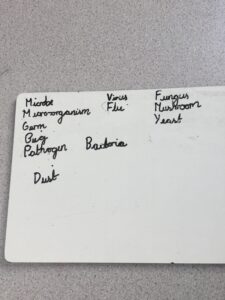 Microbe
Microorganism
Germ
Bug
Pathogen
Dust
Virus
Flu
Bacteria
Fungus
Mushroom
Yeast